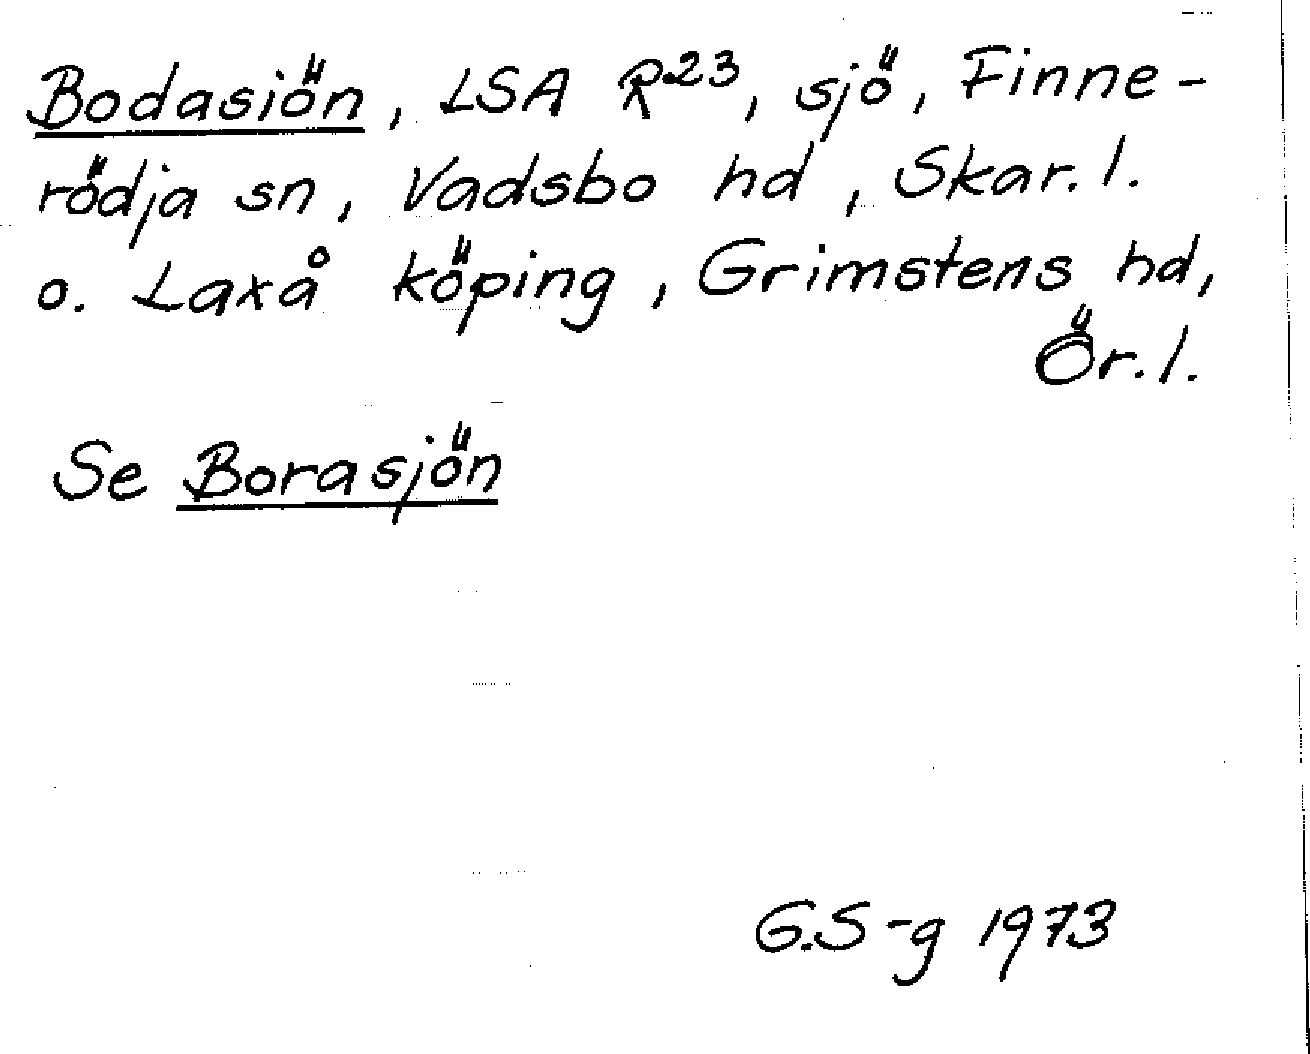 Bodasiön, LSA R23, sjö, Finne-
rödja sn, Vadsbo hd, Skar. l.
o. Laxå köping, Grimstens hd,
Ör. l.
Se Borasjön
G.S-g 1973